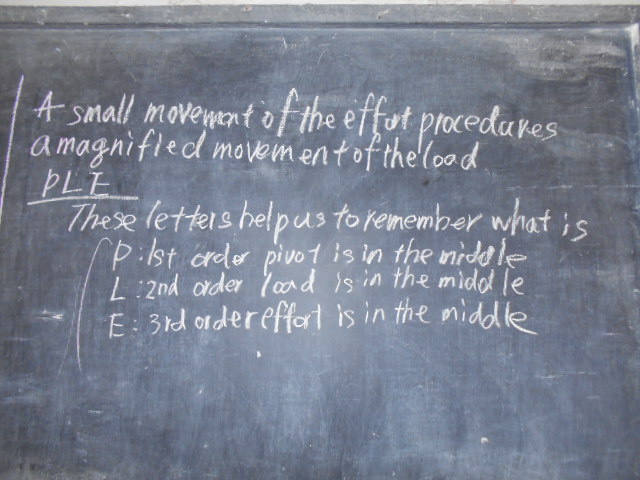 A small movement of the effort procedures
a magnified movement of the load
PLE
These letters help us to remember what is
P : 1st order pivot is in the middle
L : 2nd order load is in the middle
E : 3rd order effort is in the middle